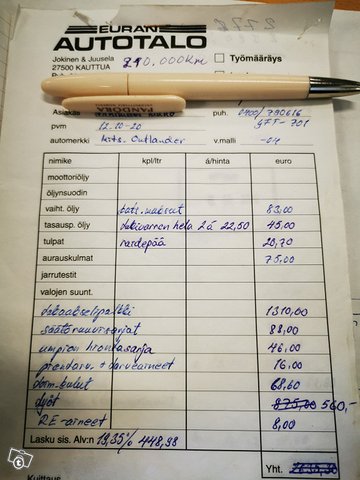 EURAN
AUTOTALO
Jokinen & Juusela
27500 KAUTTUA
210.000km
Työmääräys
PANDORA
Asiakas
puh. 0400/790616
pvm 12.10-20
GFT-701
automerkki Mits. Outlander
v.malli -04
nimike kpl/ltr á/hinta euro
moottoriöljy
öljynsuodin
vaiht. öljy 83,00
tasausp. öljy 2 á 22,50 45,00
tulpat 20,70
aurauskulmat 75,00
jarrutestit
valojen suunt.
takaakselipalkki 1310,00
säätöruuvisarjat 88,00
umpion hiontasarja 46,00
16,00
toim.kulut 68,60
työt 875,00 560,-
RE-aineet 8,00
Lasku sis. Alv:n 19,35% 448,98
Yht.
Kuittaus